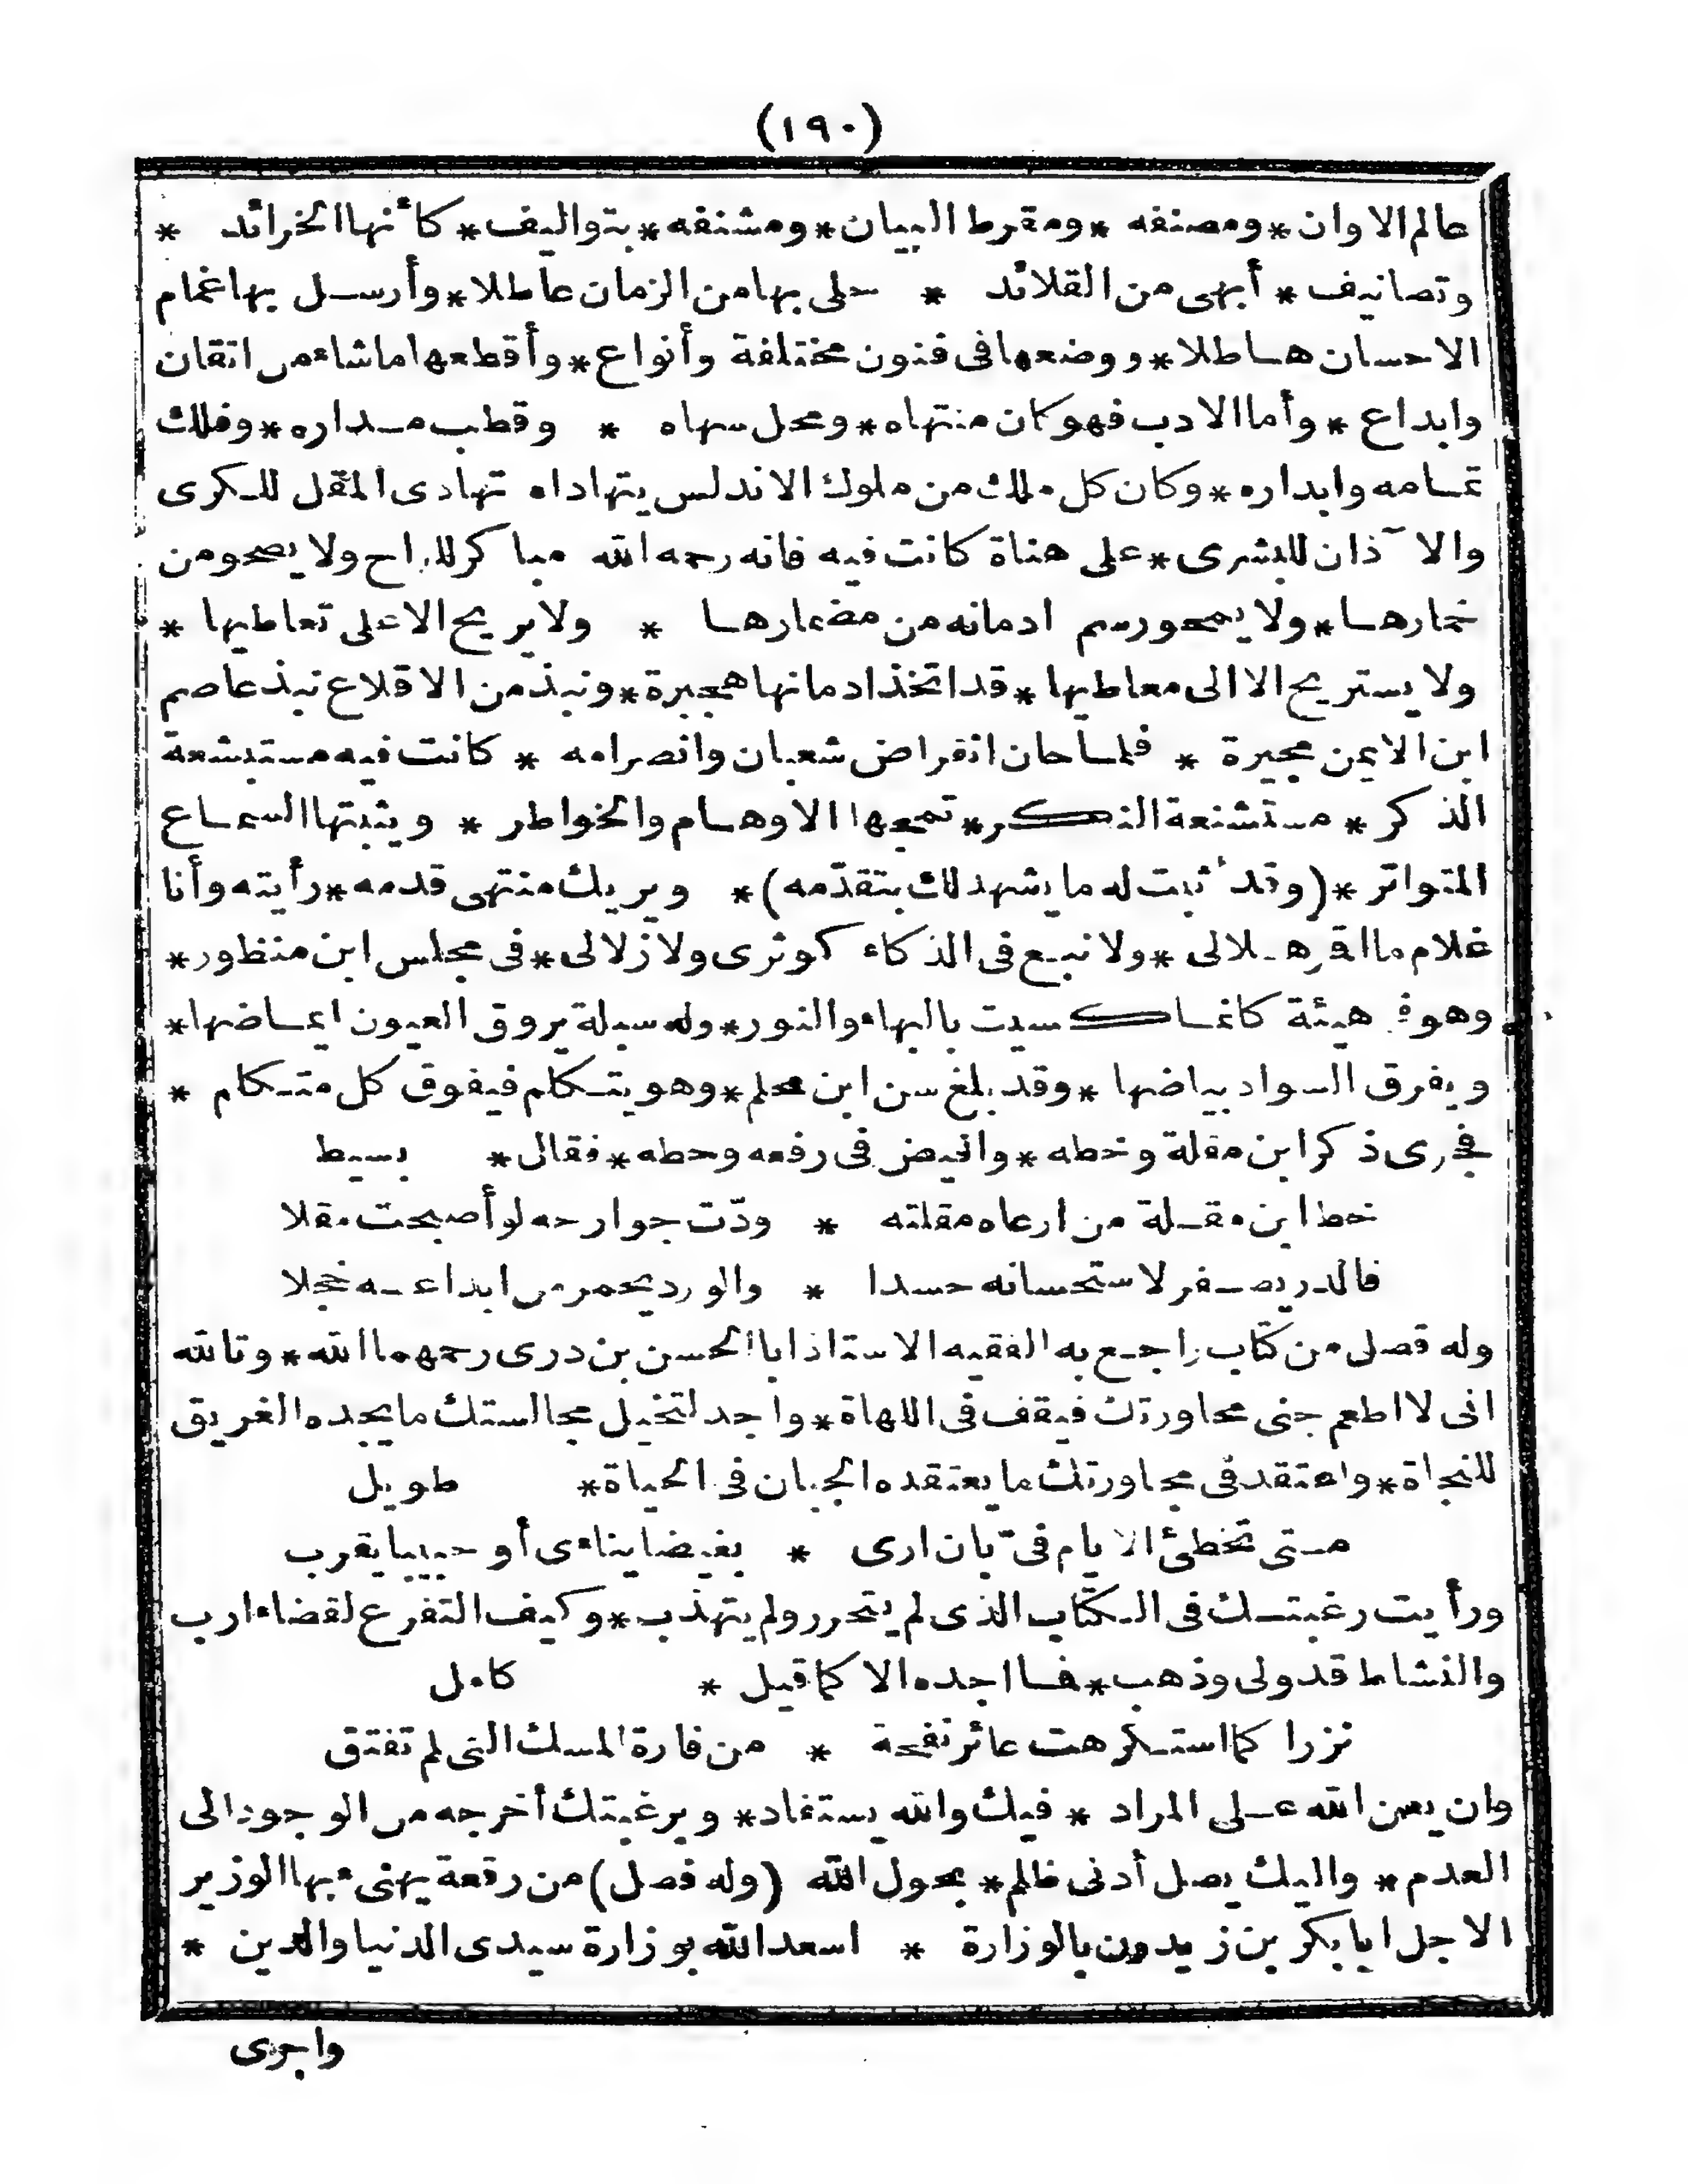 (١٩٠)
عالم الاوان * ومصنفه * ومقرط البيان * ومشنفه * بتواليف * كأنها الخرائد *
وتصانيف * أبهى من القلائد * حلى بها من الزمان عاطلا * وأرسل بها غمام
الاحسان هاطلا * ووضعها فى فنون مختلفة وأنواع * وأقطعها ما شاء من اتقان
وابداع * وأما الادب فهو كان منتهاه * ومحل سهاه * وقطب مداره * وفلك
تمامه وابداره * وكان كل ملك من ملوك الاندلس يتهاداه تهادى المقل للكرى
والا ٓذان للبشرى * على هناة كانت فيه فانه رحمه الله مباكر للراح ولا يصحو من
خمارها * ولا يمحو رسم ادمانه من مضمارها * ولا يريح الا على تعاطيها *
ولا يستريح الا الى معاطيها * قد اتخذ ادمانها هجيرة * ونبذ من الاقلاع نبذ عاصم
ابن الايمن مجيرة * فلما حان انقراض شعبان وانصرامه * كانت فيه مستبشعة
الذكر * مستشنعة النكر * تمجها الاوهام والخواطر * ويثبتها السماع
المتواتر * (وقد أثبت له ما يشهد لك بتقدّمه) * ويريك منتهى قدمه * رأيته وأنا
غلام ما اقر هلالى * ولا نبع فى الذكاء كوثرى ولا زلالى * فى مجلس ابن منظور *
وهو فى هيئة كانما كسيت بالبهاء والنور * وله سبلة يروق العيون ايماضها *
ويفرق السواد بياضها * وقد بلغ سن ابن محلم * وهو يتكلم فيفوق كل متكلم *
فجرى ذكر ابن مقلة وخطه * وافيض فى رفعه وحطه * فقال * بسيط
خط ابن مقلة من ارعاه مقلته * ودّت جوارحه لو أصبحت مقلا
فالدر يصفر لاستحسانه حسدا * والورد يحمر من ابداعه خجلا
وله فصل من كتاب راجع به الفقيه الاستاذ ابا الحسن بن درى رحمهما الله * وتالله
انى لا اطعم جنى محاورتك فيقف فى اللهاة * واجد لتخيل مجالستك ما يجده الغريق
للنجاة * واعتقد فى مجاورتك ما يعتقده الجبان فى الحياة * طويل
متى تخطئ الايام فىّ بان ارى * بغيضا يناءى أو حبيبا يقرب
ورأيت رغبتك فى الكتاب الذى لم يتحرر ولم يتهذب * وكيف التفرع لقضاء ارب
والنشاط قد ولى وذهب * فما اجده الا كما قيل * كامل
نزرا كما استكرهت عائر نفحة * من فارة المسك التى لم تفتق
وان يعن الله على المراد * فيك والله يستفاد * وبرغبتك أخرجه من الوجود الى
العدم * واليك يصل أدنى ظلم * بحول الله (وله فصل) من رقعة يهنىء بها الوزير
الاجل ابا بكر بن زيدون بالوزارة * اسعد الله بوزارة سيدى الدنيا والدين *
واجرى